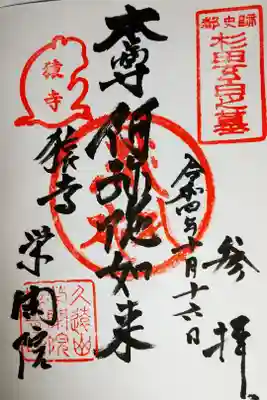 都史蹟
杉田玄白之墓
参拝
令和四年十月十六日
本尊阿弥陀如来
猿寺
猿寺
栄閑院
久遠山
栄閑院